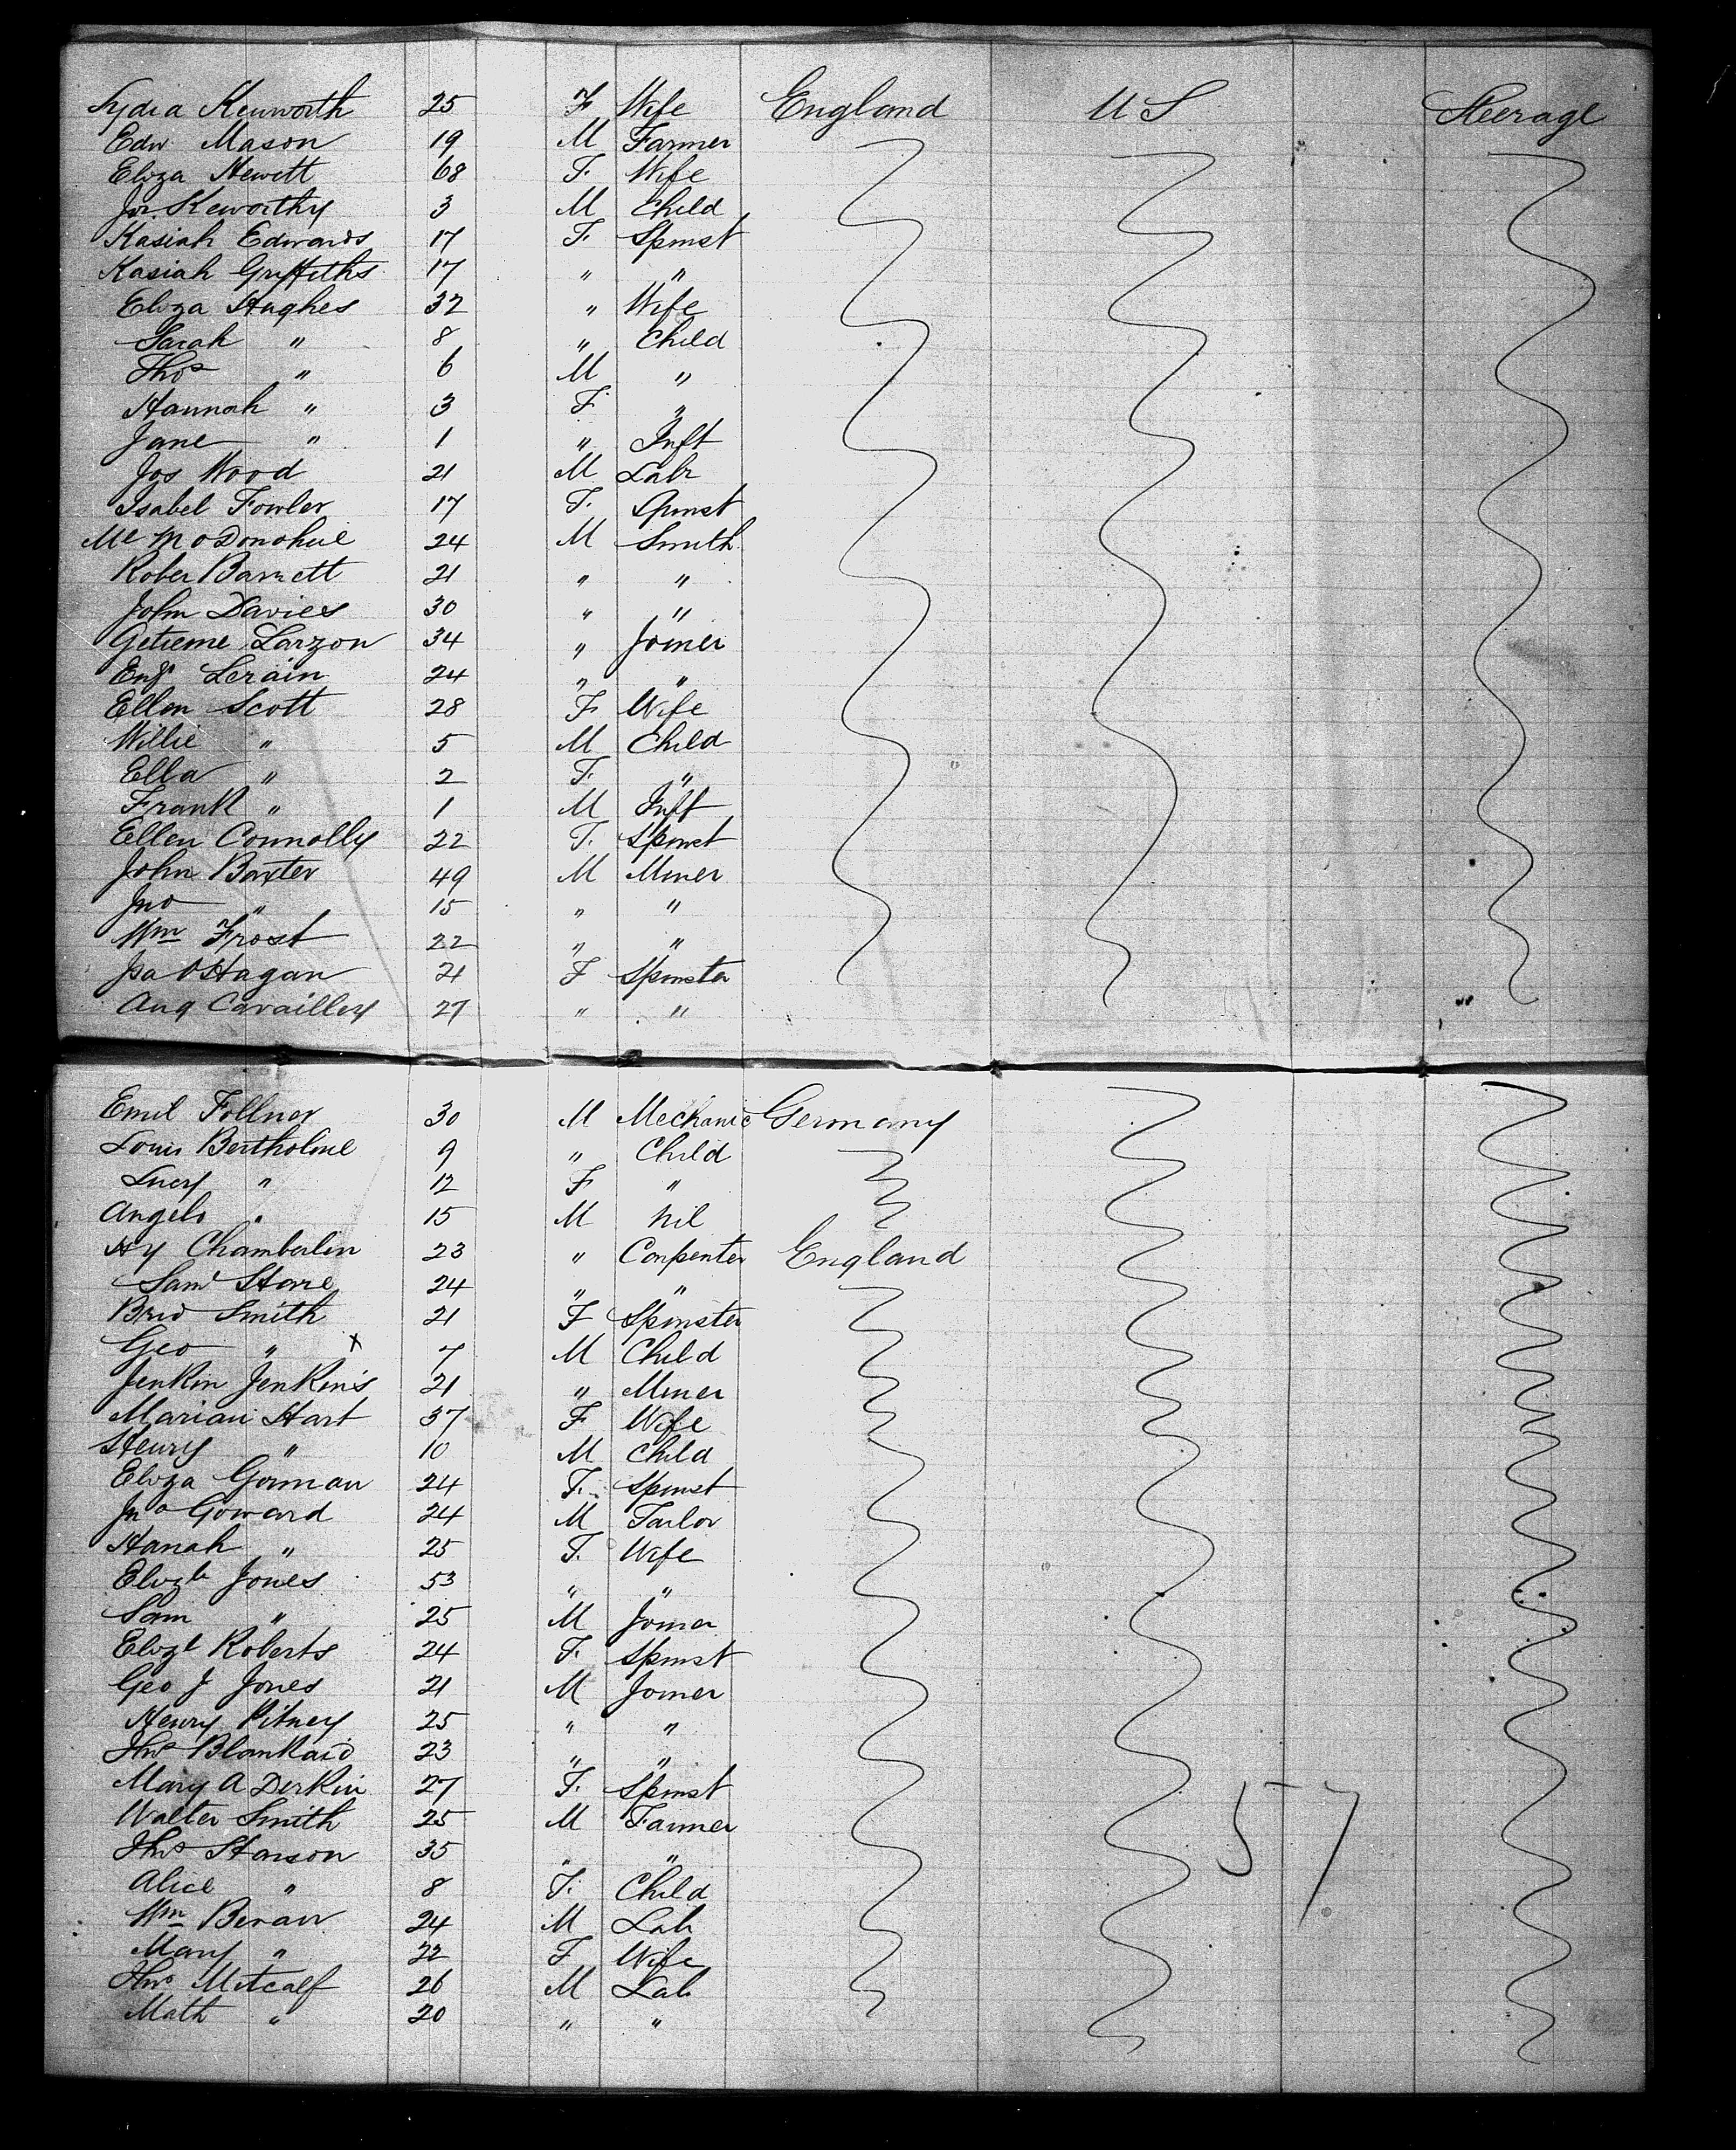 Lydia Kenworth 25 F Wife England U S Steerage
Edw Mason 19 M Farmer
Eliza Hewett 68 F. Wife
Jos. Keworthy 3 M Child
Kasiah Edwards 17 F. Spinst
Kasiah Griffiths 17 " "
Eliza Hughes 32 " Wife
Sarah " 8 " Child
Thos " 6 M "
Hannah " 3 F "
Jane " 1 " Inft
Jos Wood 21 M Labr
Isabel Fowler 17 F. Spinst
Mc Donohue 24 M Smith
Rober Barnett 21 " "
John Davies 30 " "
Getieme Larzon 34 " Joiner
Lerain 24 " "
Ellen Scott 28 F Wife
Willie " 5 M Child
Ella " 2 F. "
Frank " 1 M Inft
Ellen Connolly 22 F. Spinst
John Baxter 49 M Miner
Jno " 15 " "
Wm Frost 22 " "
Isa O'Hagan 21 F Spinster
Aug Cavailley 27 " "
Emil Follner 30 M Mechanic Germany
Louis Bertholme 9 " Child
Lucy " 12 F "
Angelo " 15 M Nil
Hy Chamberlin 23 " Carpenter England
Saml Stone 24 " "
Brid Smith 21 F Spinster
Geo " x 7 M Child
Jenkin Jenkins 21 " Miner
Marian Hart 37 F Wife
Henry " 10 M Child
Eliza Gorman 24 F. Spinst
Jno Goward 24 M Tailor
Hanah " 25 F. Wife
Elizb Jones 53 " "
Sam " 25 M Joiner
Elizt Roberts 24 F. Spinst
Geo J Jones 21 M Joiner
Henry Pitney 25 " "
Thos Blankaid 23 " "
Mary A Derkin 27 F. Spinst
Walter Smith 25 M Farmer
Thos Hanson 35 " "
57
Alice " 8 F. Child
Wm Bevan 24 M Lab
Mary " 22 F Wife
Thos Metcalf 26 M Lab
Math " 20 " "